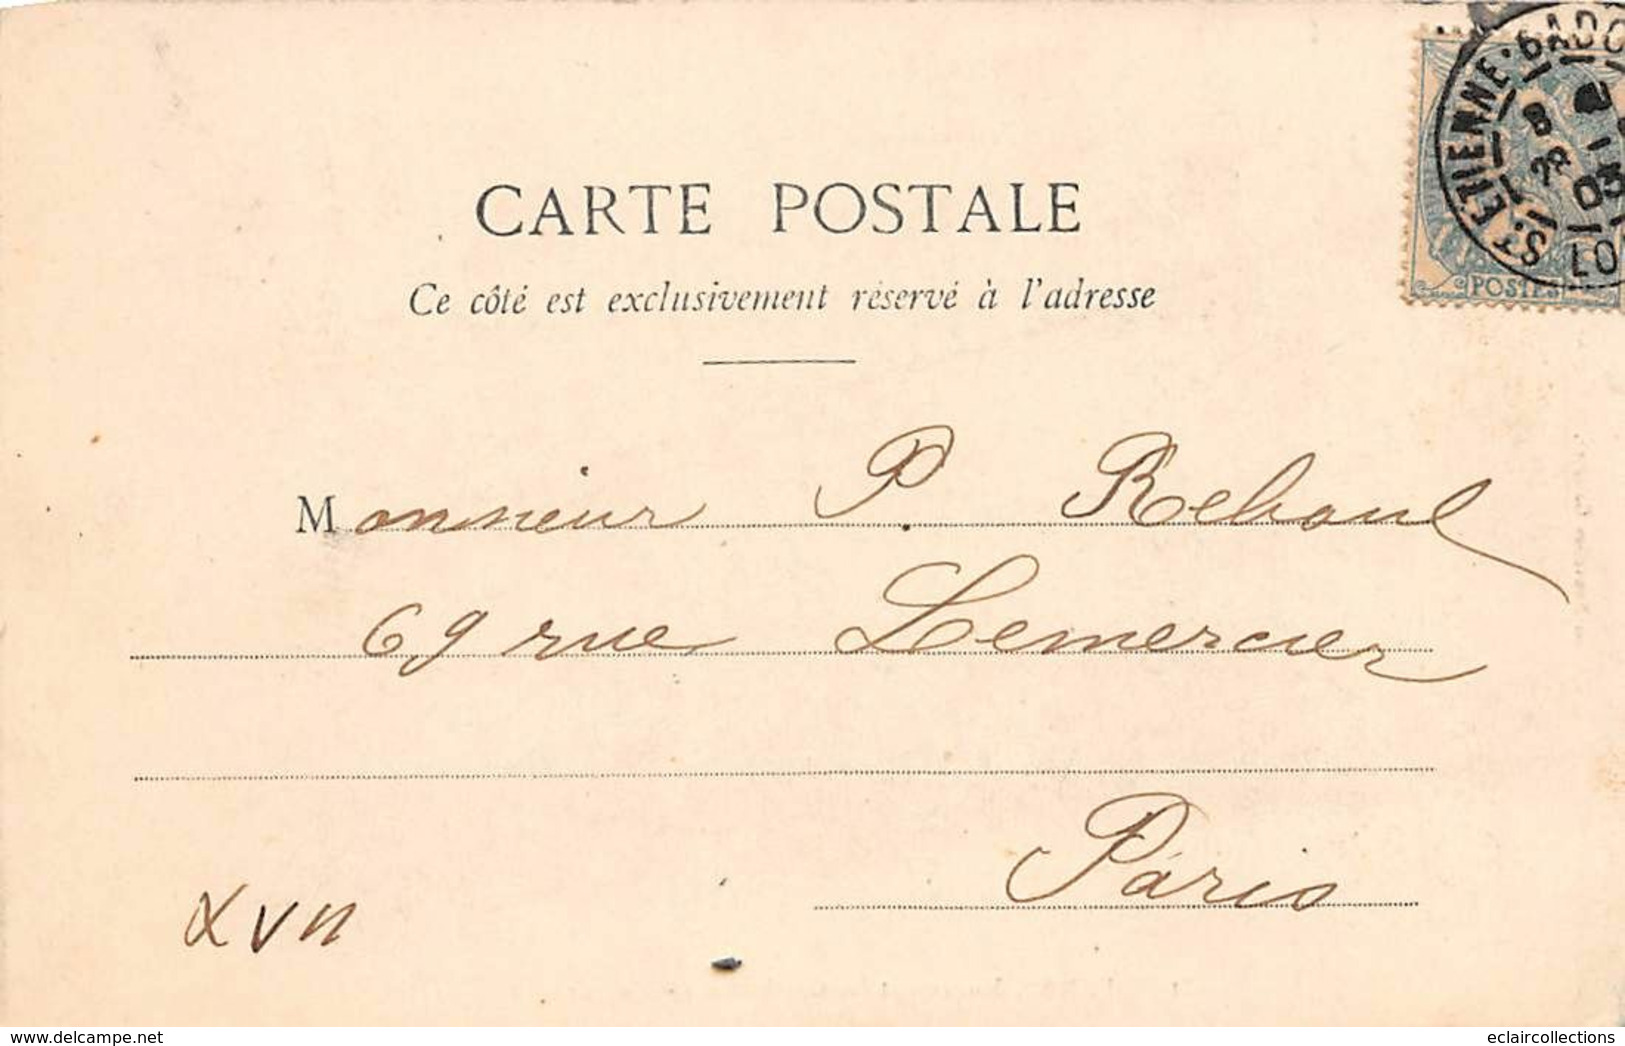 CARTE POSTALE
Ce côté est exclusivement réservé à l'adresse
ST ETIENNE · BADO
8
28
03
LO
POSTES
Monsieur P. Reboul
69 rue Lemercier
Paris
XVII
delcampe.net
eclaircollections